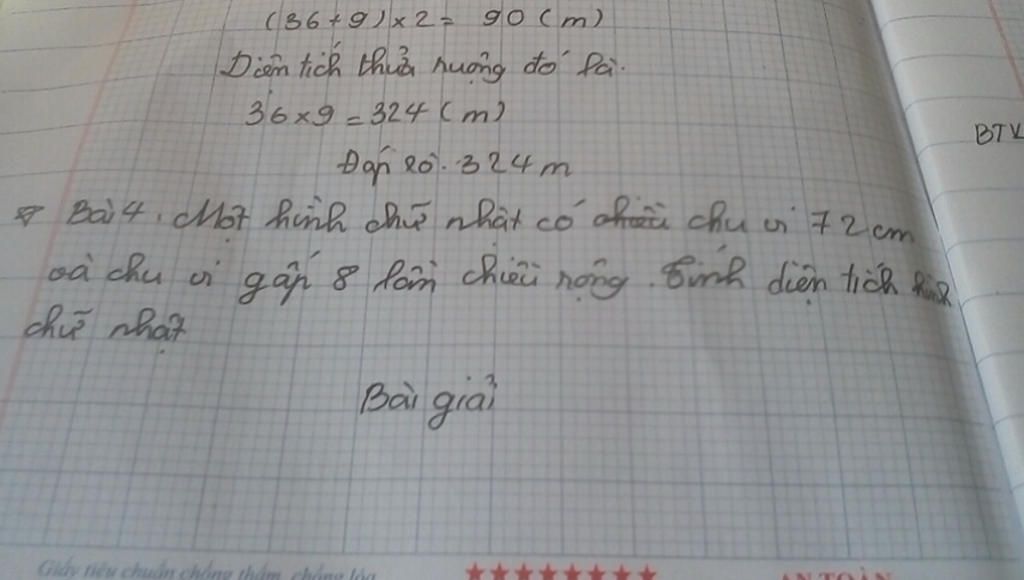 (36+9)×2= 90 (m)
Diện tích thửa ruộng đó là.
36×9=324 (m)
Đáp số. 324m
BTV
Bài 4. Một hình chữ nhật có chiều chu vi 72cm
và chu vi gấp 8 lần chiều rộng. Tính diện tích hình
chữ nhật
Bài giải
Giấy tiêu chuẩn chống thấm, chống lóa
AN TOÀN